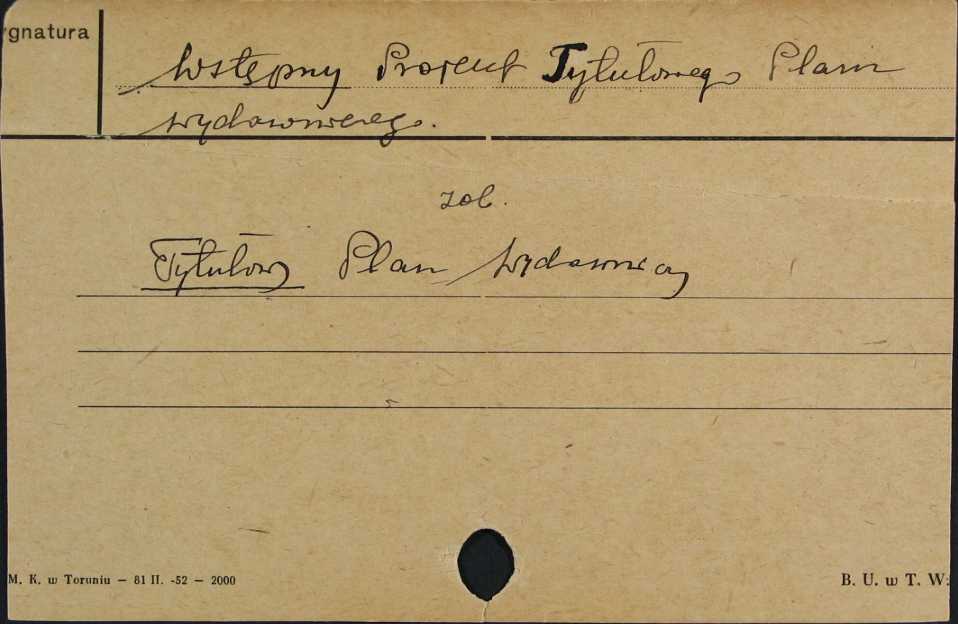 ygnatura
Wstępny Projekt Tytułowego Planu
wydawniczego.
zob.
Tytułowy Plan wydawniczy
M. K. w Toruniu — 81 II. -52 — 2000
B. U. w T. W: